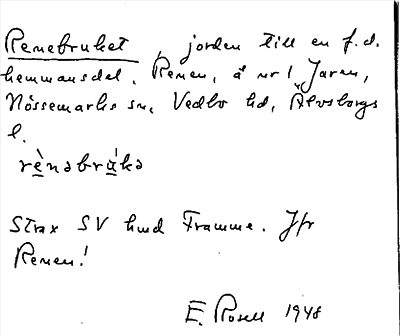 Renebruket, jorden till en f.d.
hemmansdel, Renen, å nr 1 Jaren,
Nössemarks sn, Vedbo hd, Älvsborgs
l.
rè̱nəbrá̱kə
Strax SV hmd Framme. Jfr
Renen!
E. Rosell 1948